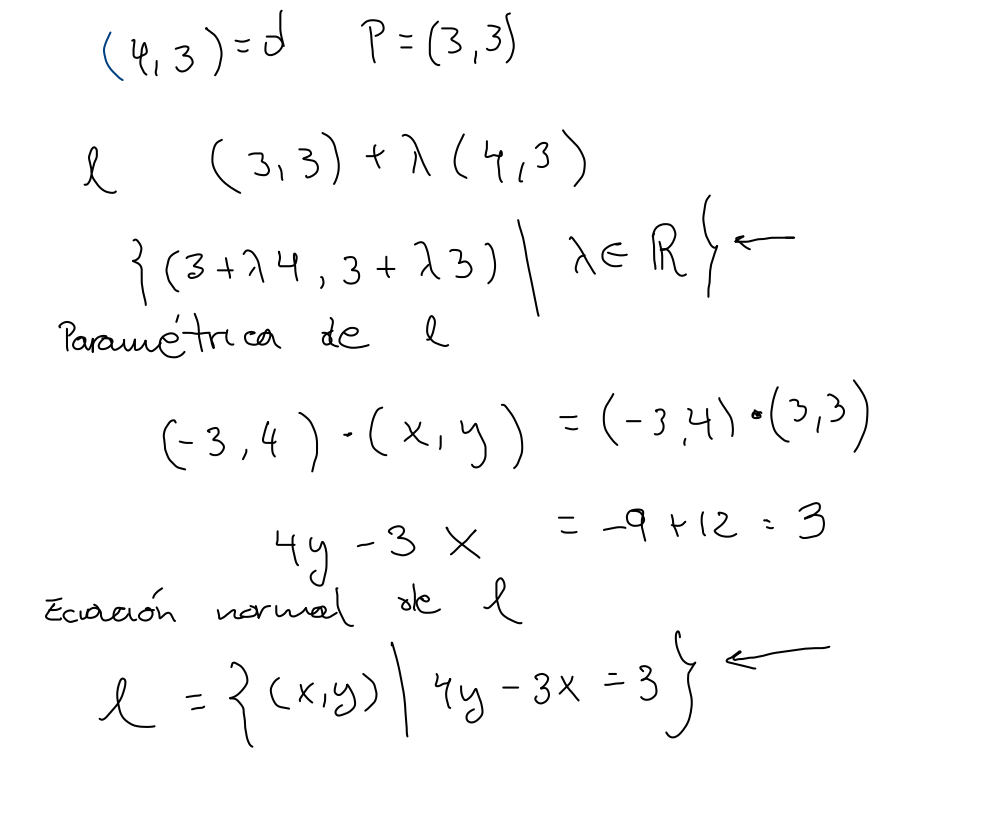 (4,3) = d P = (3,3)
l (3,3) + λ (4,3)
{(3+λ4, 3+λ3) | λ ∈ ℝ} ←
Paramétrica de l
(-3,4) · (x,y) = (-3,4) · (3,3)
4y - 3x = -9 + 12 = 3
Ecuación normal de l
l = {(x,y) | 4y - 3x = 3} ←